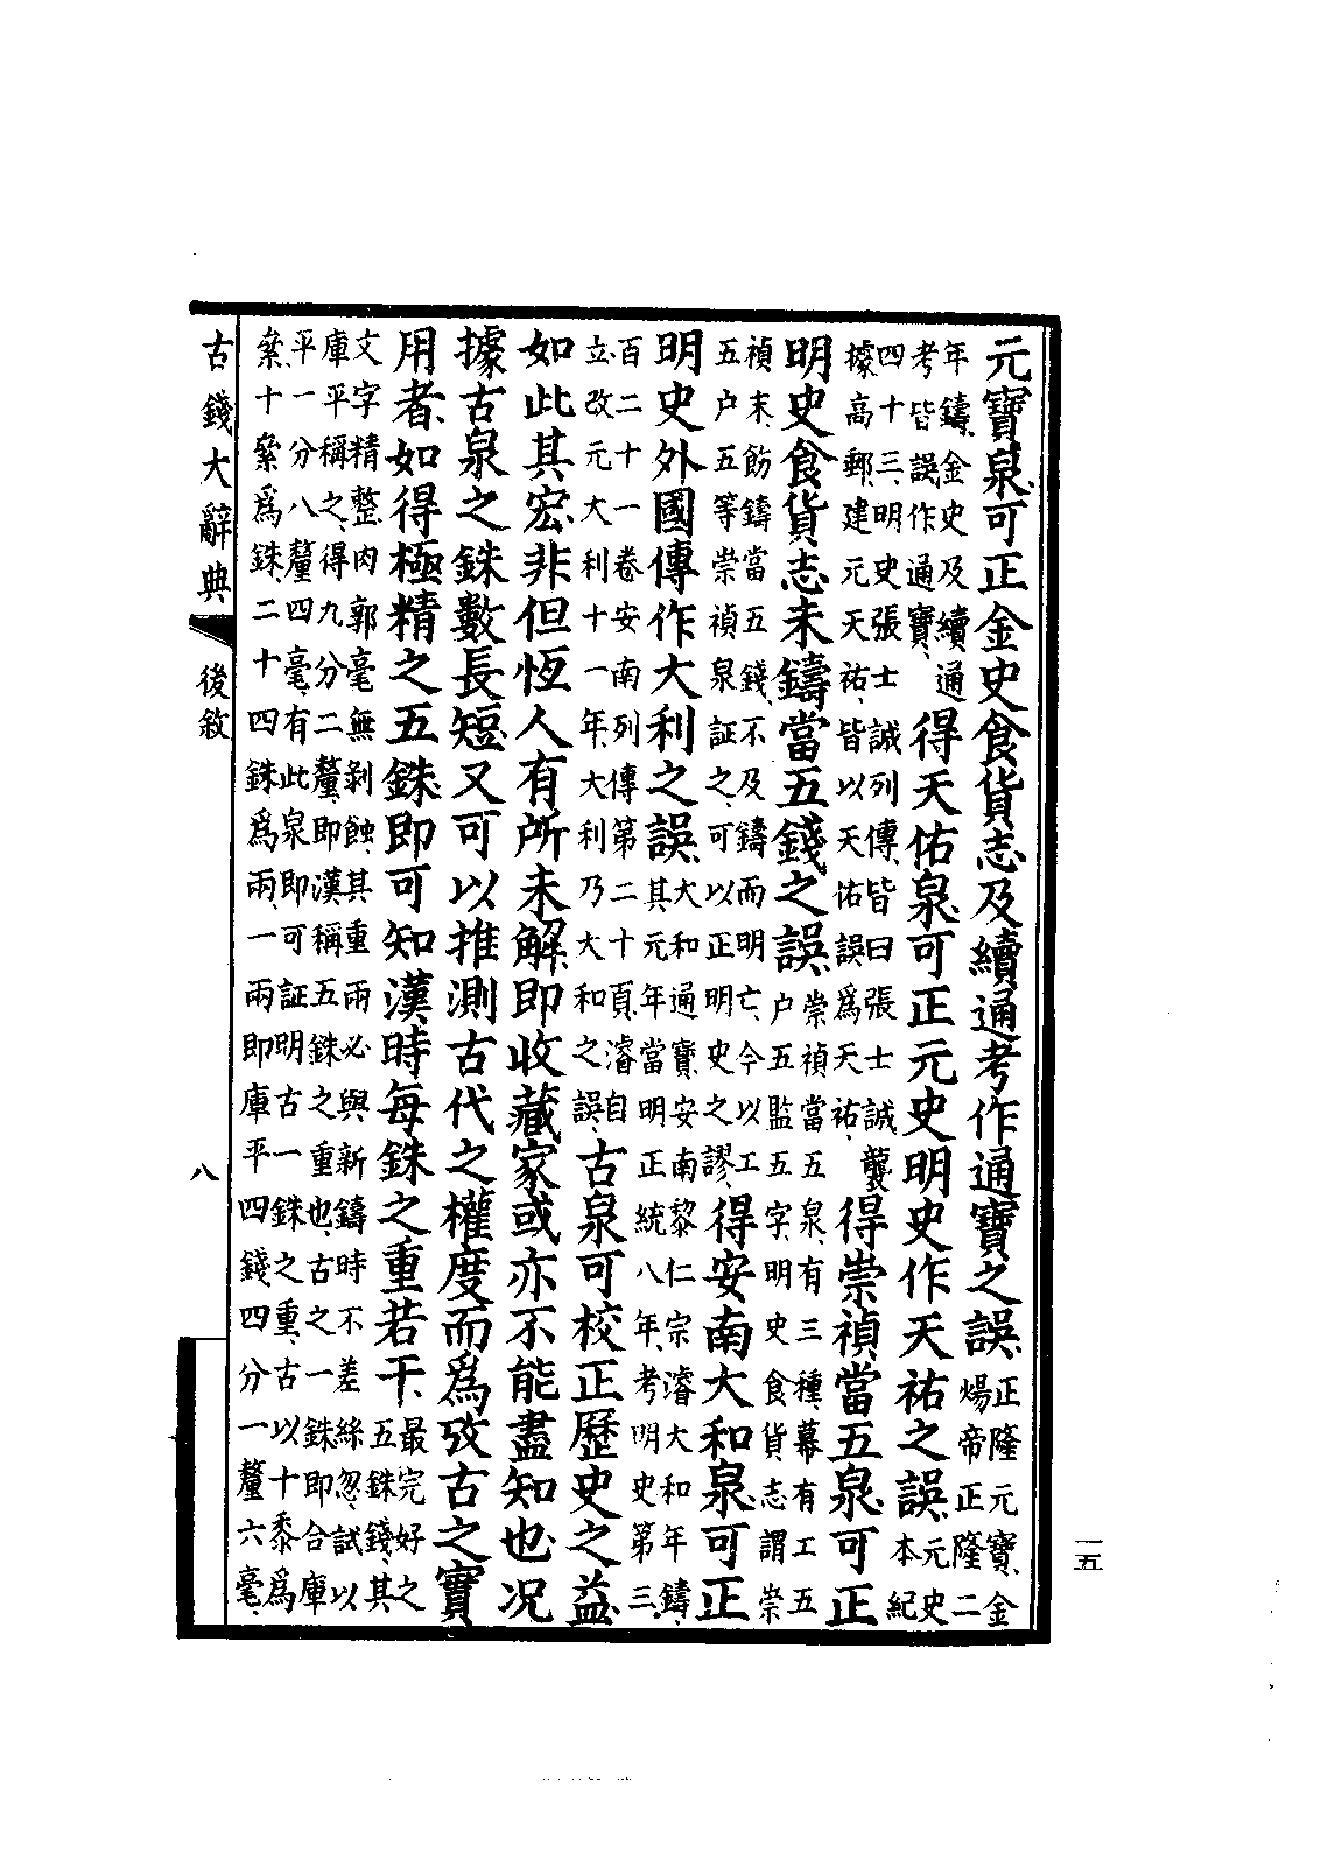 元寶泉、可正金史食貨志及續通考作通寶之誤、正隆元寶、金煬帝正隆二
年鑄、金史及續通考皆誤作通寶、得天佑泉、可正元史明史作天祐之誤、元史本紀
四十三、明史張士誠列傳、皆曰張士誠襲據高郵、建元天祐、皆以天佑誤爲天祐、得崇禎當五泉、可正
明史食貨志未鑄當五錢之誤、崇禎當五泉、有三種、幕有工五户五監五字、明史食貨志謂崇
禎末、飭鑄當五錢、不及鑄而明亡、今以工五户五等崇禎泉証之、可以正明史之謬、得安南大和泉、可正
明史外國傳作大利之誤、大和通寶、安南黎仁宗濬大和年鑄、其元年當明正統八年、考明史第三、
百二十一卷安南列傳第二十頁、濬自立、改元大利十一年、大利乃大和之誤、古泉可校正歷史之益
如此其宏、非但恆人有所未解、即收藏家或亦不能盡知也、况
據古泉之銖數長短、又可以推測古代之權度、而爲攷古之實
用者、如得極精之五銖、即可知漢時每銖之重若干、最完好之五銖錢、其
文字精整、肉郭毫無剝蝕、其重兩必與新鑄時不差絲忽、試以庫平稱之、得九分二釐、即漢稱五銖之重也、古之一銖、即合庫
平一分八釐四毫、有此泉即可証明古一銖之重、古以十黍爲絫、十絫爲銖、二十四銖爲兩、一兩即庫平四錢四分一釐六毫、
古錢大辭典
後敘
八
一五